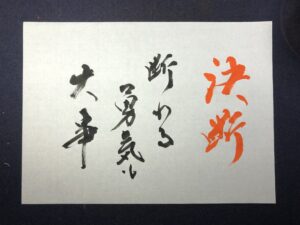 決断
断わる
勇気も
大事